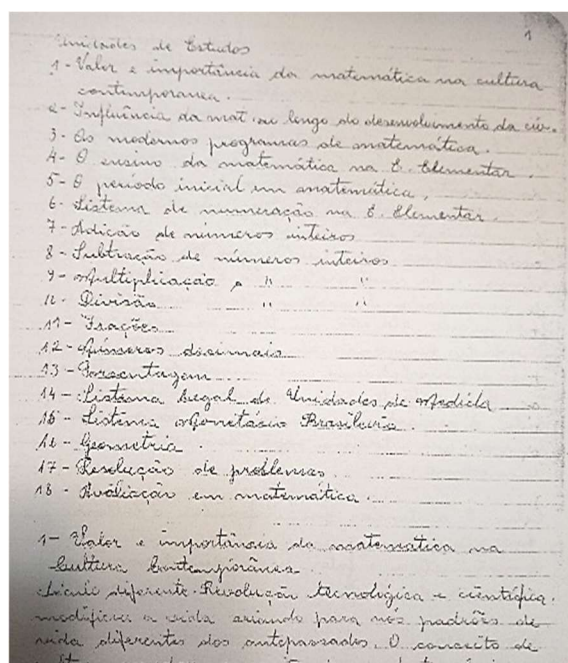 1
Unidades de Estudos
1- Valor e importância da matemática na cultura
contemporanea.
2- Influência da mat. ao longo do desenvolvimento da civ.
3- Os modernos programas de matemática.
4- O ensino da matemática na E. Elementar.
5- O período inicial em matemática.
6- Sistema de numeração na E. Elementar.
7- Adição de números inteiros
8- Subtração de números inteiros
9- Multiplicação " "
10- Divisão " "
11- Frações
12- Números decimais
13- Porcentagem
14- Sistema Legal de Unidades de Medida
15- Sistema Monetário Brasileiro.
16- Geometria
17- Resolução de problemas
18- Avaliação em matemática.
1- Valor e importância da matemática na
Cultura Contemporânea
Século diferente. Revolução tecnológica e científica.
modificou a vida criando para nós padrões de
vida diferentes dos antepassados. O conceito de